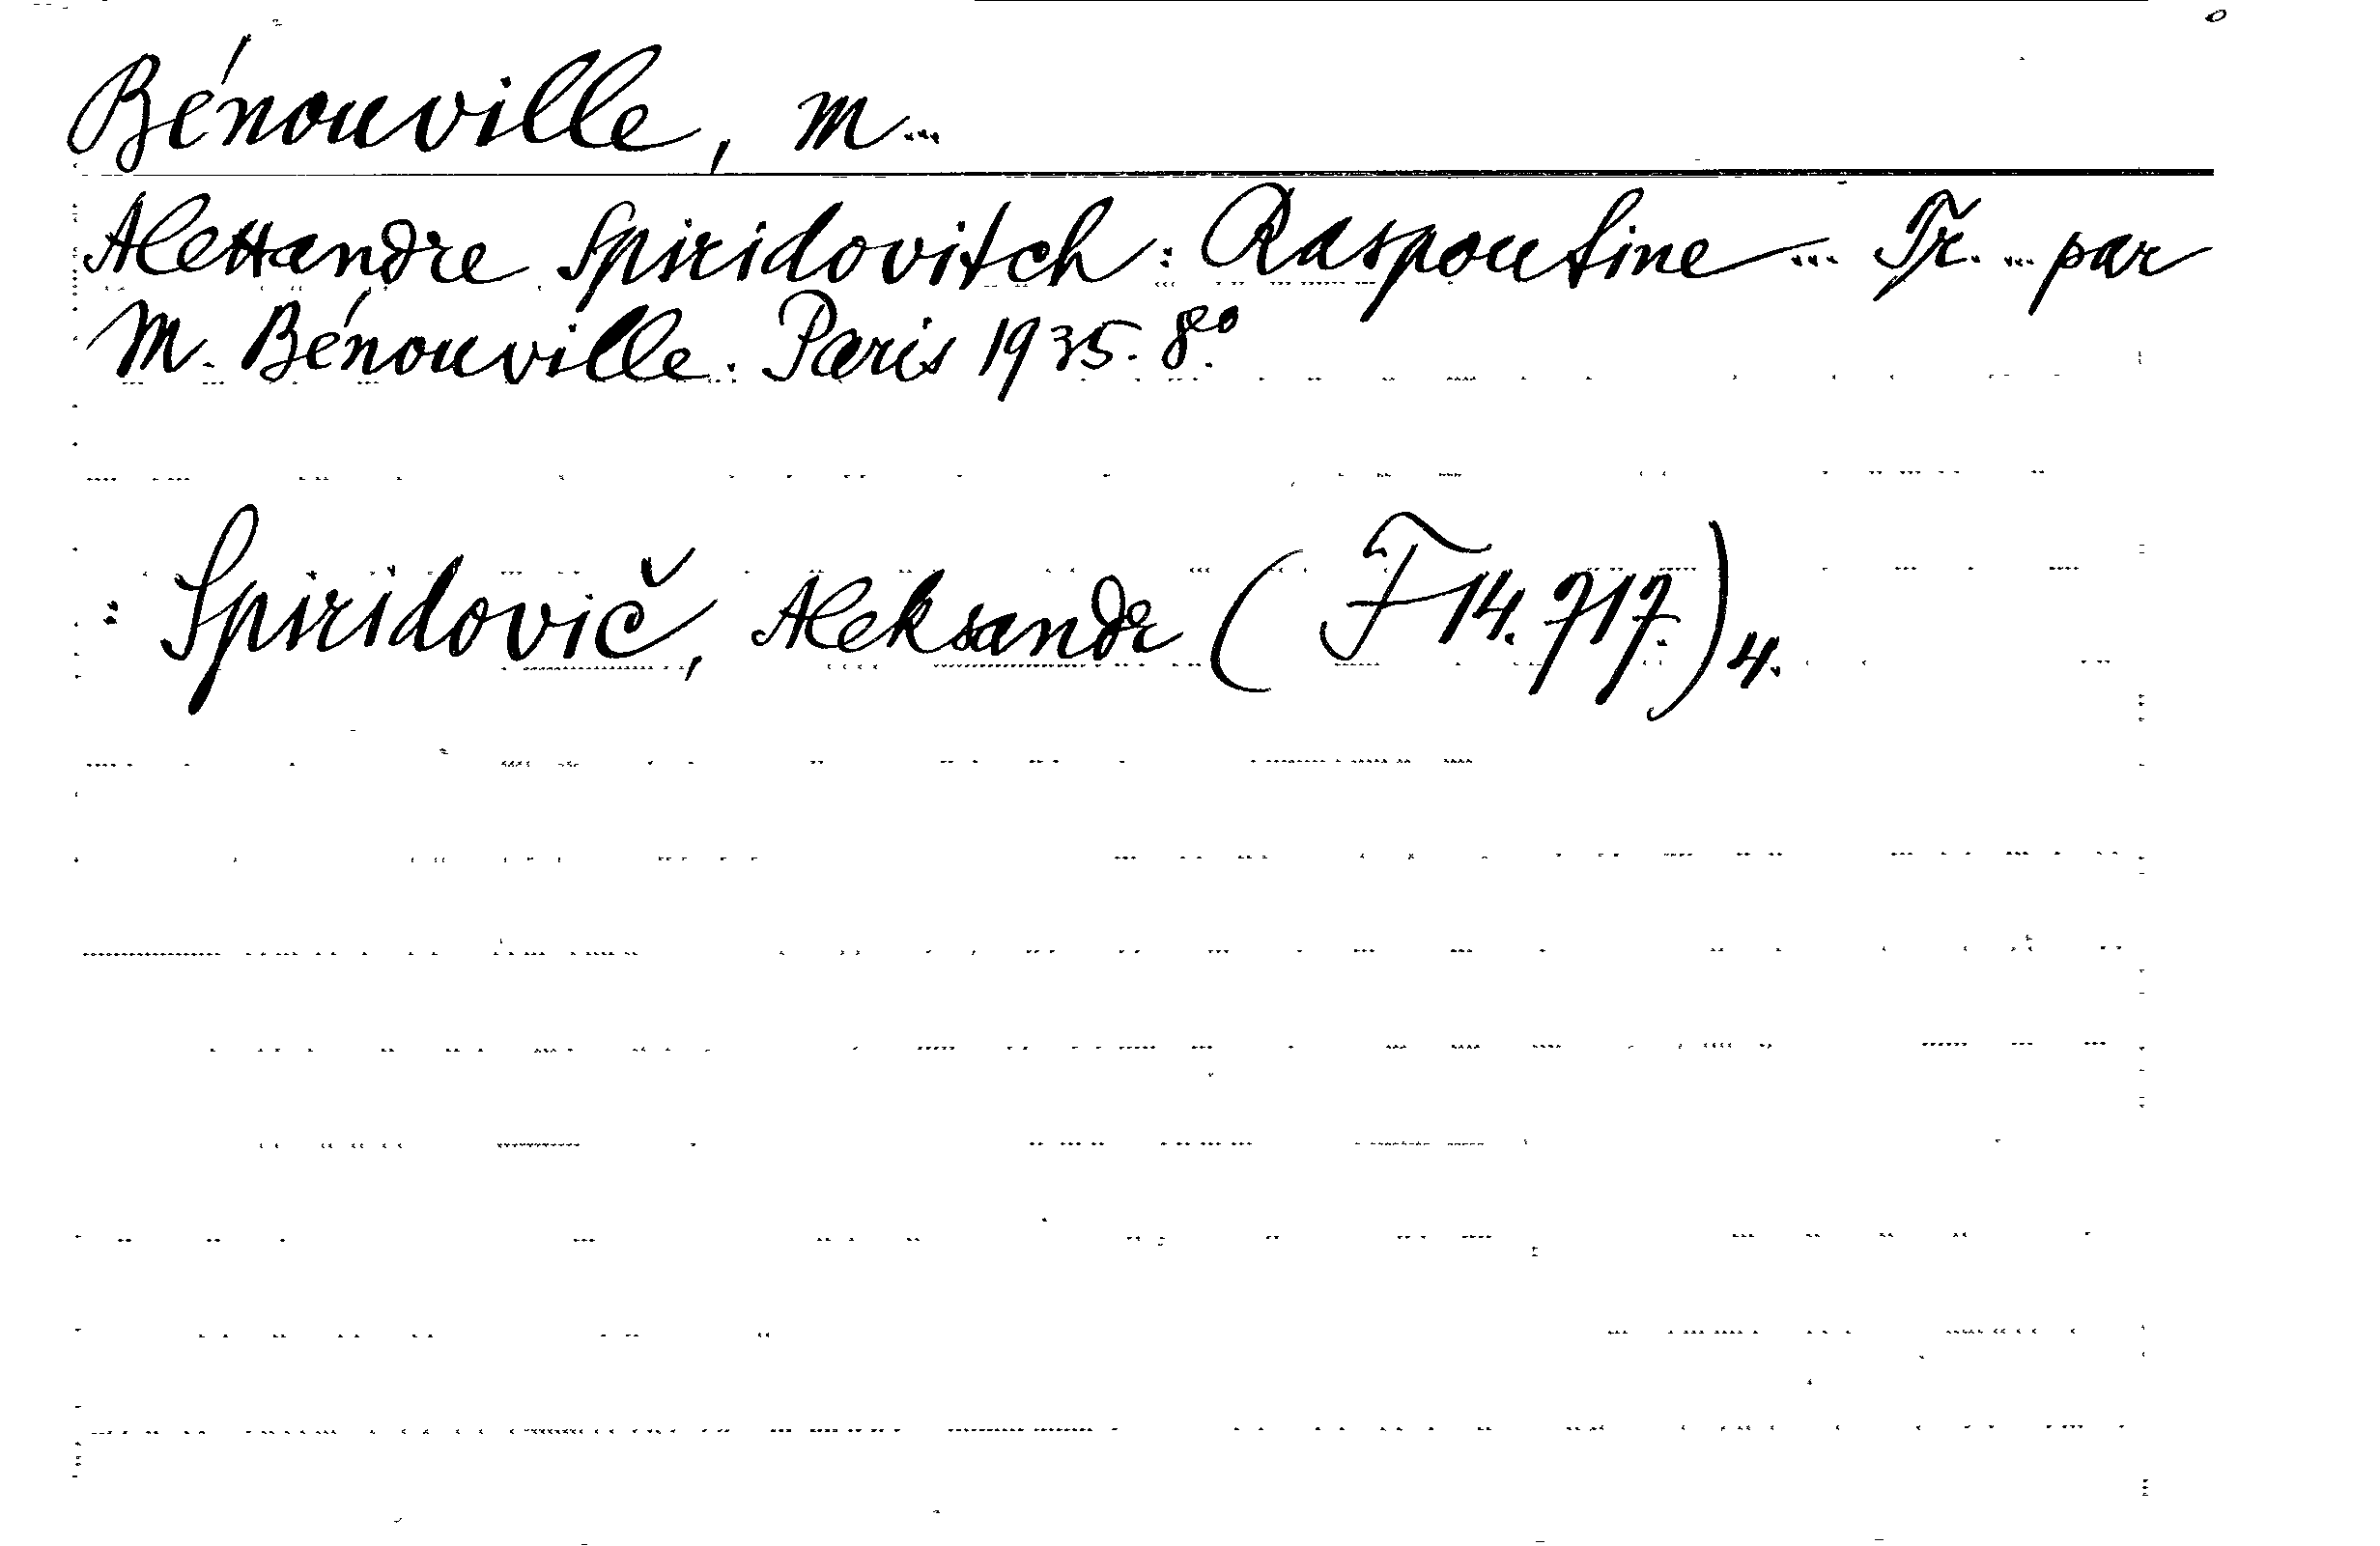 Bénouville, M...
Alexandre Spiridovitch: Raspoutine... Tr. ... par
M. Bénouville. Paris 1935. 8º.
: Spiridovič, Aleksandr (F 14.717.) 4.